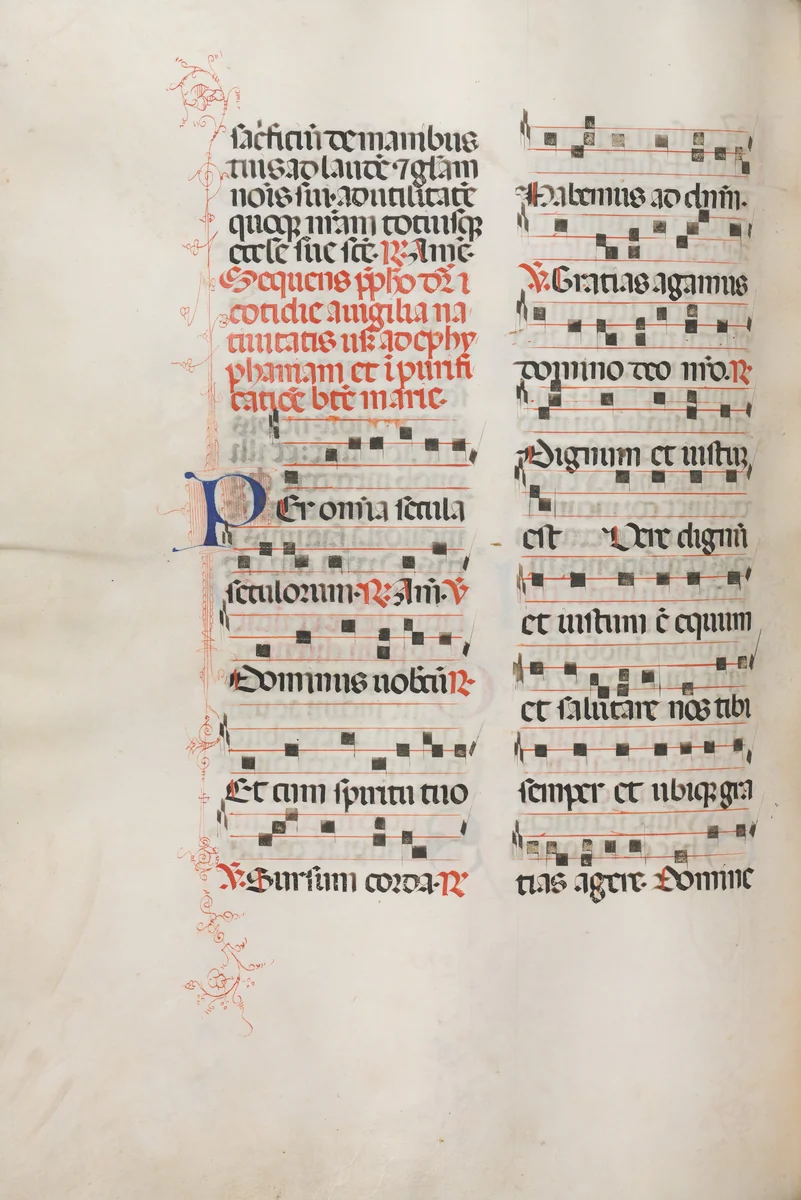 sac̄ficiū de manibus
tuis ad laudē ⁊ gl̄am
nōis sui· ad utilitatē
quoqꝫ nr̄am totiusqꝫ
eccl̄e sue scē· ℟· Amē·
Sequens p̄fho dr̄ i
cotidie a uigilia na
tiuitatis usꝫ ad ephy
phaniam et ī purifi
catiōē btē marie·
PEr omīa secula
seculorum· ℟· Am̄· ℣
Dominus uobcū ℟·
Et cum spiritu tuo
℣· Sursum corda· ℟
Habemus ad dnm̄·
℣· Gratias agamus
domino deo nr̄o· ℟
Dignum et iustuꝫ
est Uere dignū
et iustum ē equum
et salutare nos tibi
semper et ubiqꝫ gra
tias agere· Domine